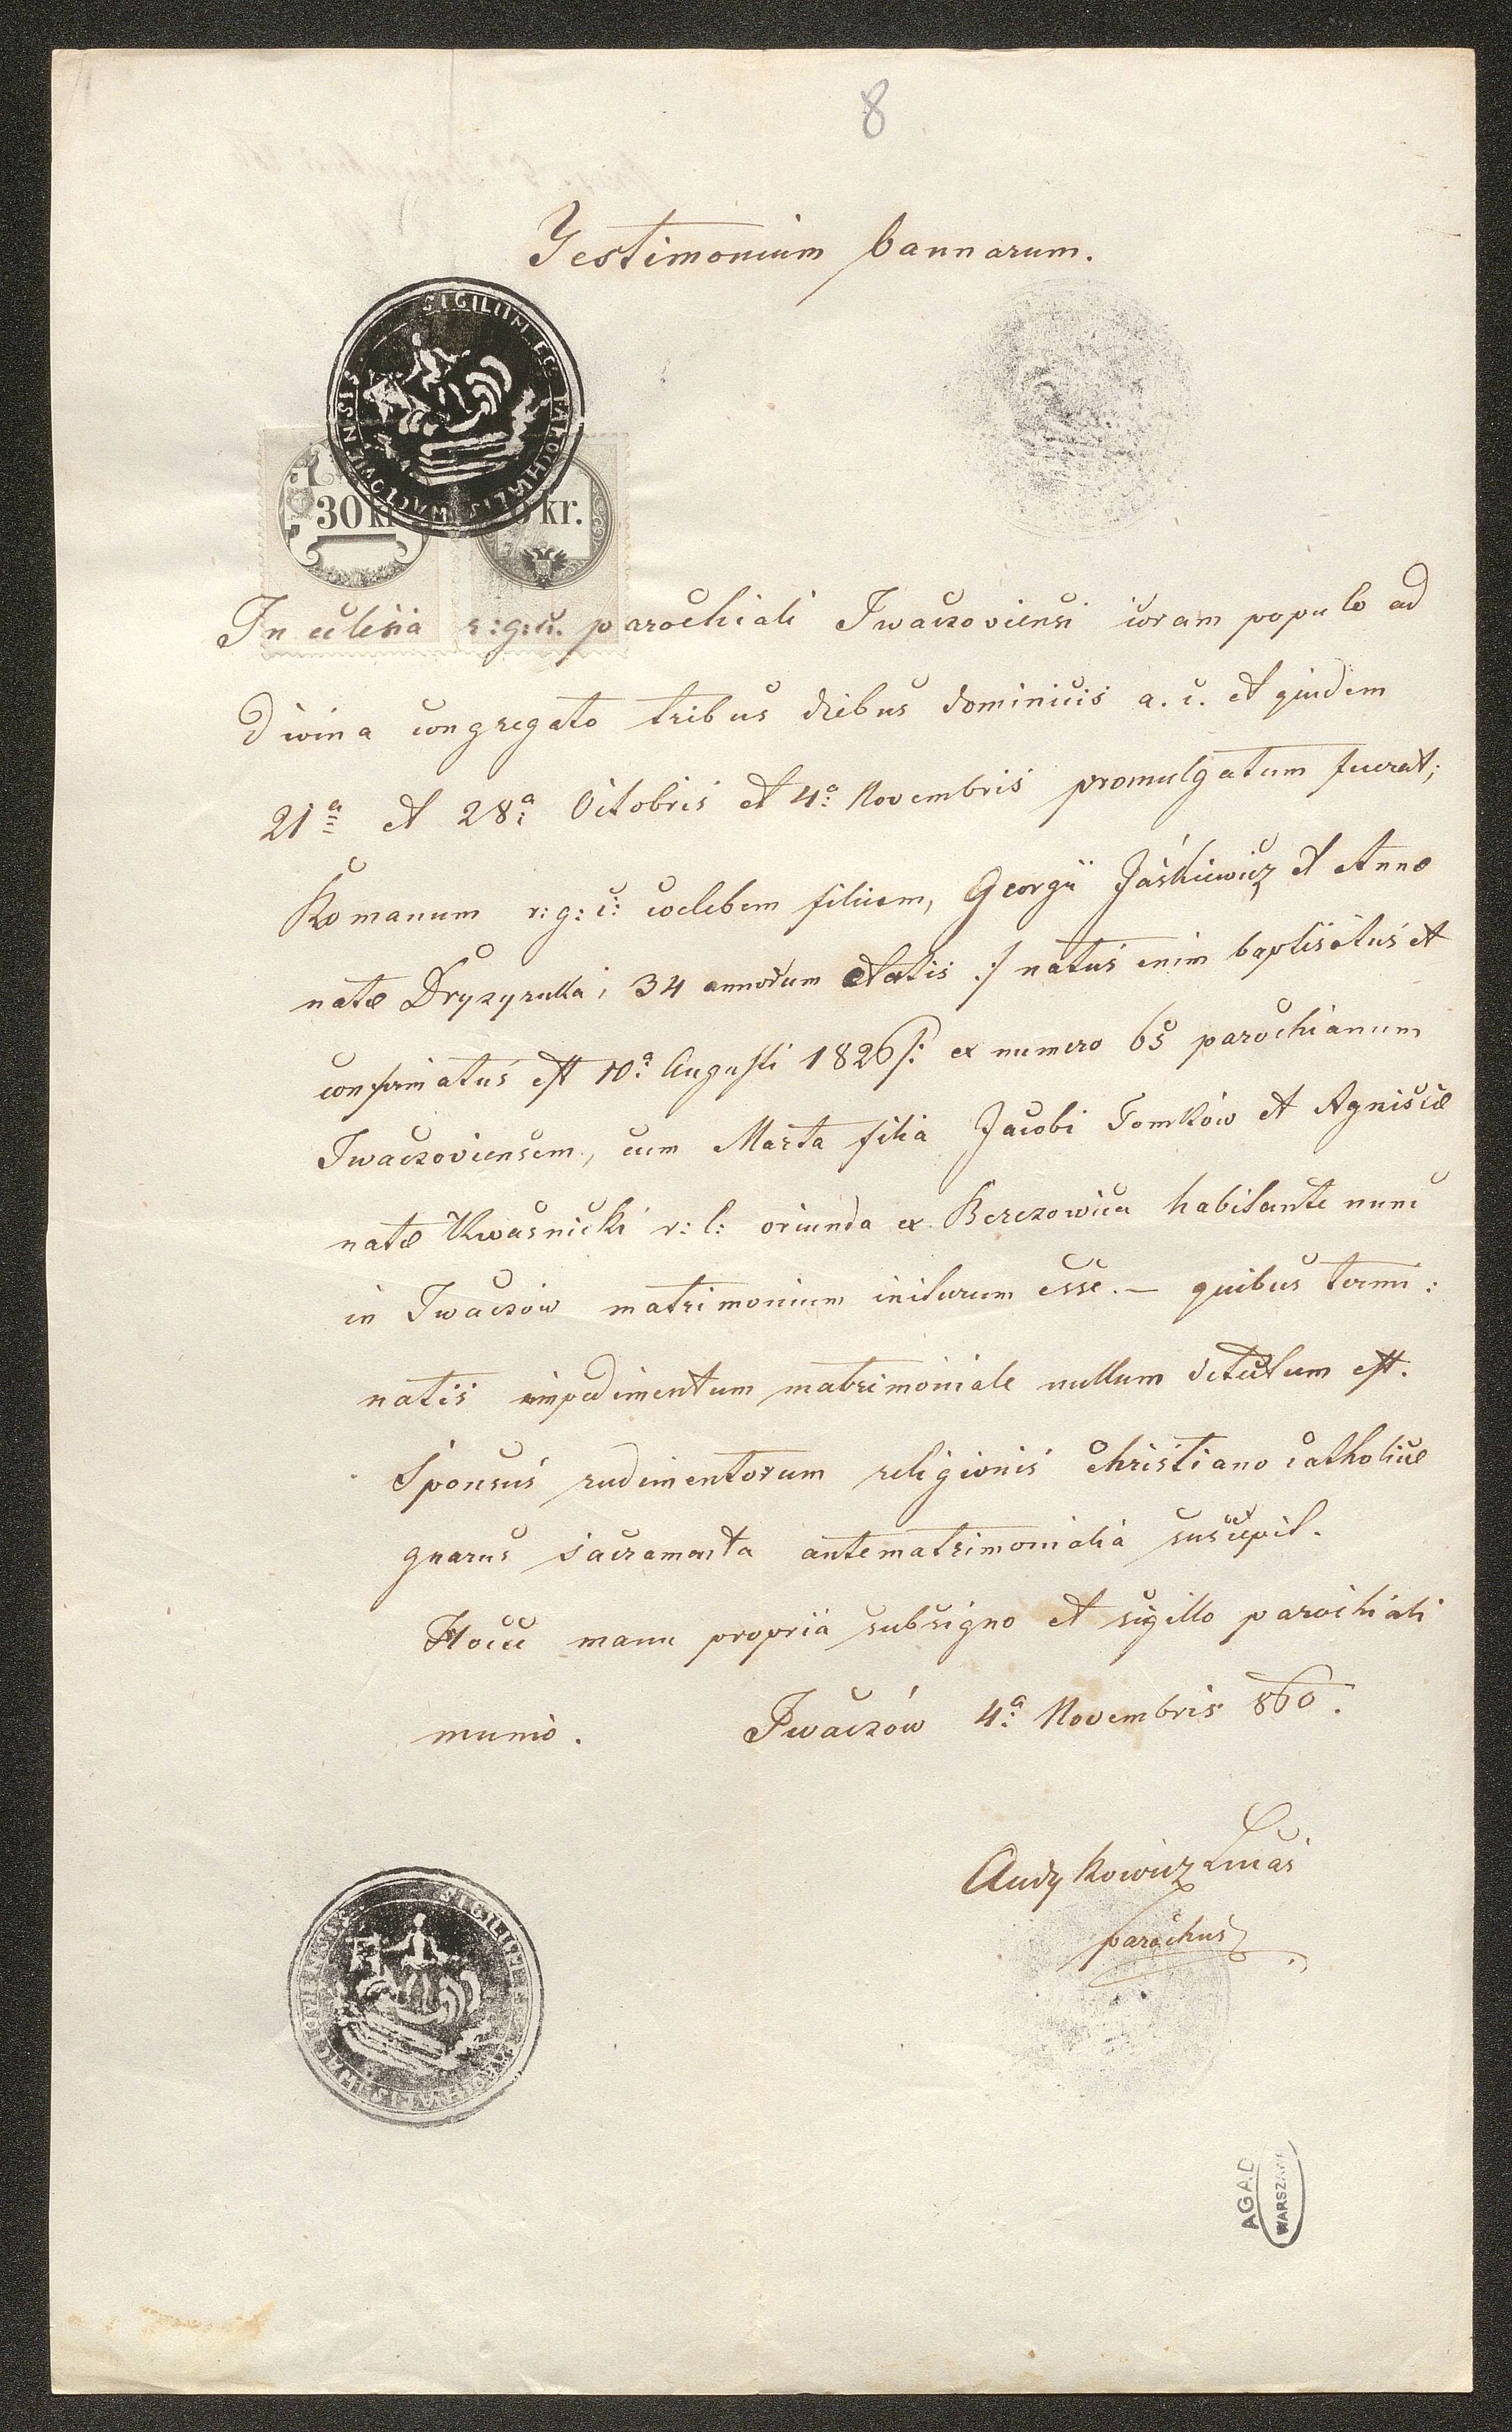 8
Testimonium bannarum.
SIGILUM EC: PAROCHIALIS IWACZOVIENSIS
30 kr. kr.
In eclesia r: g: c. parochiali Iwaczoviensi coram populo ad
divina congregato tribus diebus dominicis a. c. et quidem
21ª et 28ª Octobris et 4ª Novembris promulgatum fuerat;
Romanum r: g: c: coelebem filium, Georgii Jaśkiewicz et Annæ
natæ Dryzyrukla, 34 annorum ætatis ./ natus enim baptisatus et
confirmatus est 10ª Augusti 1826 /: ex numero 65 parochianum
Iwaczoviensem, cum Marta filia Jacobi Tomków et Agniscæ
natæ Kwaśnicki r: l: oriunda ex Berezowica habitante nunc
in Iwaczów matrimonium initurum esse. – quibus termi:
natis impedimentum matrimoniale nullum detectum est.
Sponsus rudimentorum religionis christiano catholicæ
gnarus sacramenta antematrimonialia suscepit.
Hocce manu propria subsigno et sigillo parochiali
munio. Iwaczów 4ª Novembris 860.
Audykowicz Lucas
parochus
SIGILUM EC: PAROCHIALIS IWACZOVIENSIS
AGAD
WARSZAWA